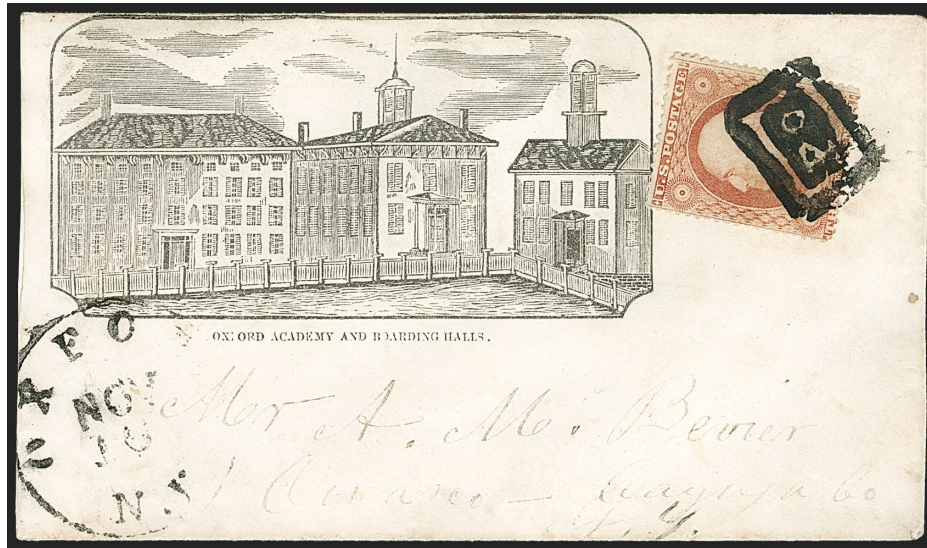 U.S. POSTAGE
OXFORD ACADEMY AND BOARDING HALLS.
OXFO
NOV
16
N.Y
Mr A. M. Bevier
Owasco - Cayuga Co
N. Y.